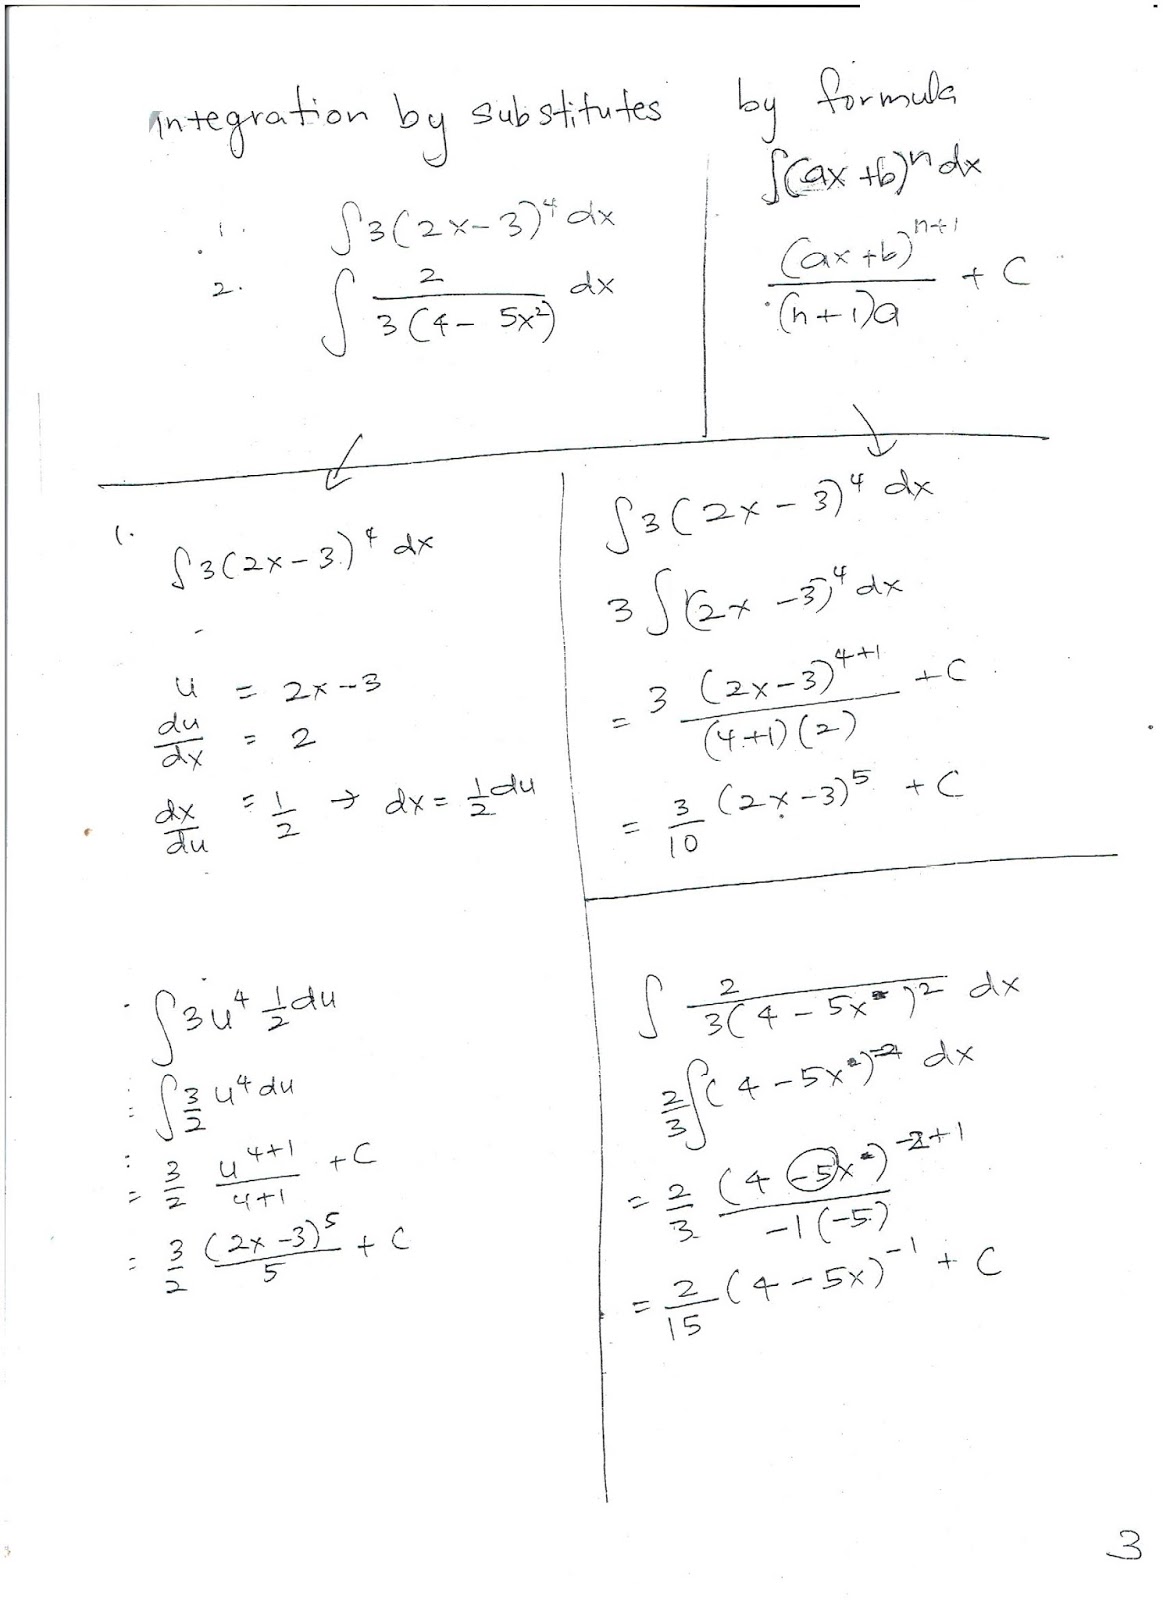 integration by substitutes
1. ∫3(2x-3)⁴ dx
2. ∫ 2/(3(4-5x²)) dx
by formula
∫(ax+b)ⁿ dx
(ax+b)ⁿ⁺¹/((n+1)a) + C
1. ∫3(2x-3)⁴ dx
u = 2x-3
du/dx = 2
dx/du = 1/2 → dx = 1/2 du
∫3u⁴ 1/2 du
: ∫3/2 u⁴ du
= 3/2 u⁴⁺¹/(4+1) + C
= 3/2 (2x-3)⁵/5 + C
∫3(2x-3)⁴ dx
3∫(2x-3)⁴ dx
= 3 (2x-3)⁴⁺¹/((4+1)(2)) + C
= 3/10 (2x-3)⁵ + C
∫ 2/(3(4-5x)²) dx
2/3 ∫(4-5x)⁻² dx
= 2/3 (4-5x)⁻²⁺¹/(-1(-5))
= 2/15 (4-5x)⁻¹ + C
3